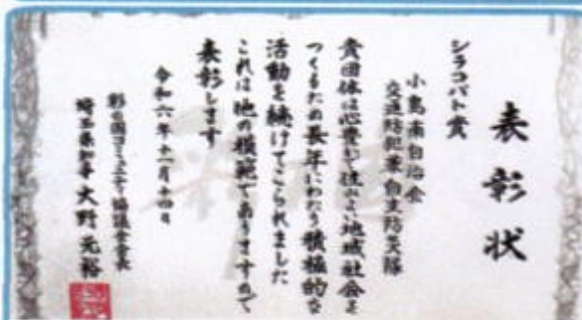 表彰状
シラコバト賞
小島南自治会
交通防犯兼自主防災隊
貴団体は心豊かで住みよい地域社会を
つくるため長年にわたり積極的な
活動を続けてこられました
これは他の模範でありますので
表彰します
令和六年十一月十四日
彩の国コミュニティ協議会会長
埼玉県知事 大野元裕